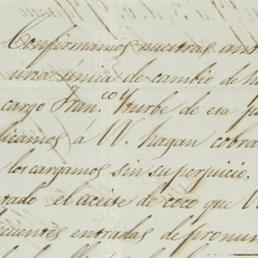 Confirmamos nuestras ant
una única de cambio de
cargo Fran.co Yturbe de esa p
licamos á VV. hagan cobra
los cargamos sin superjuicio.
rado el aceite de coco que V
cientes entradas de pronun